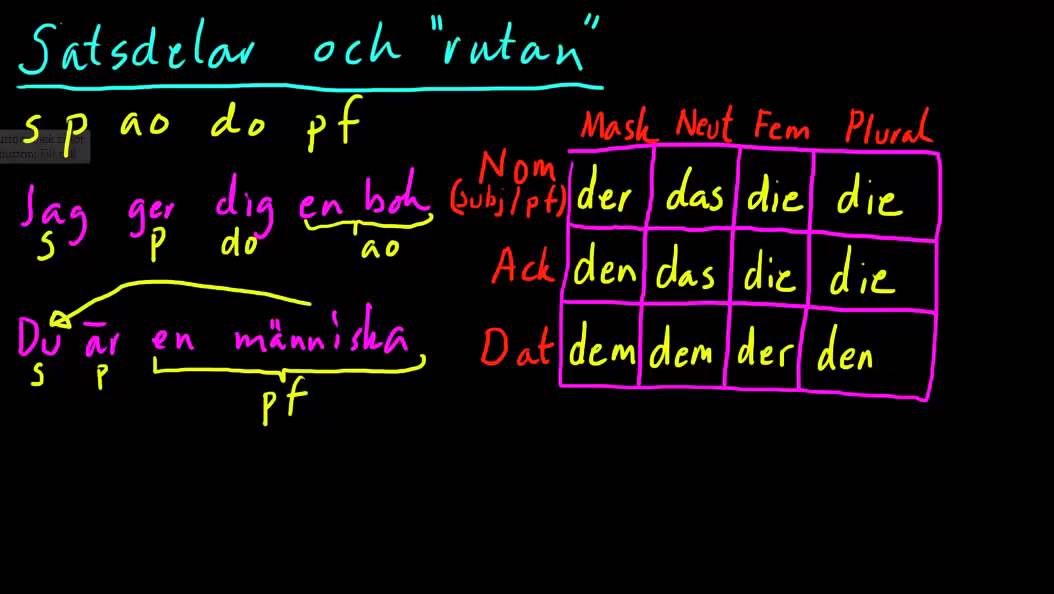 Satsdelar och "rutan"
s p ao do pf
Jag ger dig en bok
s p do ao
Du är en människa
s p pf
Mask Neut Fem Plural
Nom (subj/pf) der das die die
Ack den das die die
Dat dem dem der den